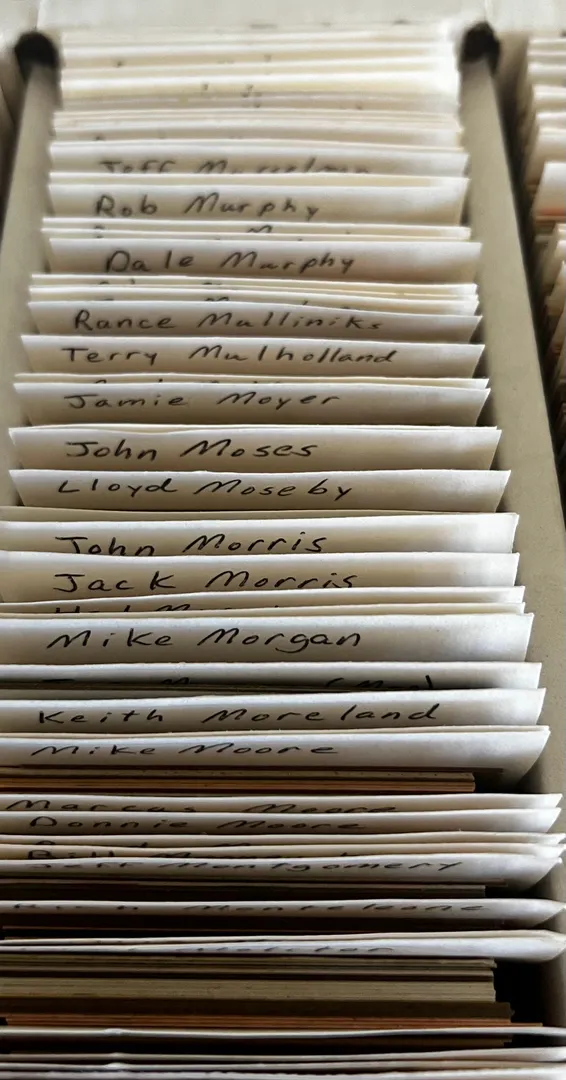 Jeff Musselman
Rob Murphy
Dale Murphy
Rance Mulliniks
Terry Mulholland
Jamie Moyer
John Moses
Lloyd Moseby
John Morris
Jack Morris
Mike Morgan
Keith Moreland
Mike Moore
Marcus Moore
Donnie Moore
Jeff Montgomery
Rich Monteleone